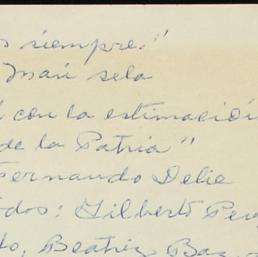 siempre."
Marí sela
con la estimación
de la Patria"
Fernando Delie
dos: Gilberto Per
do, Beatriz Baz